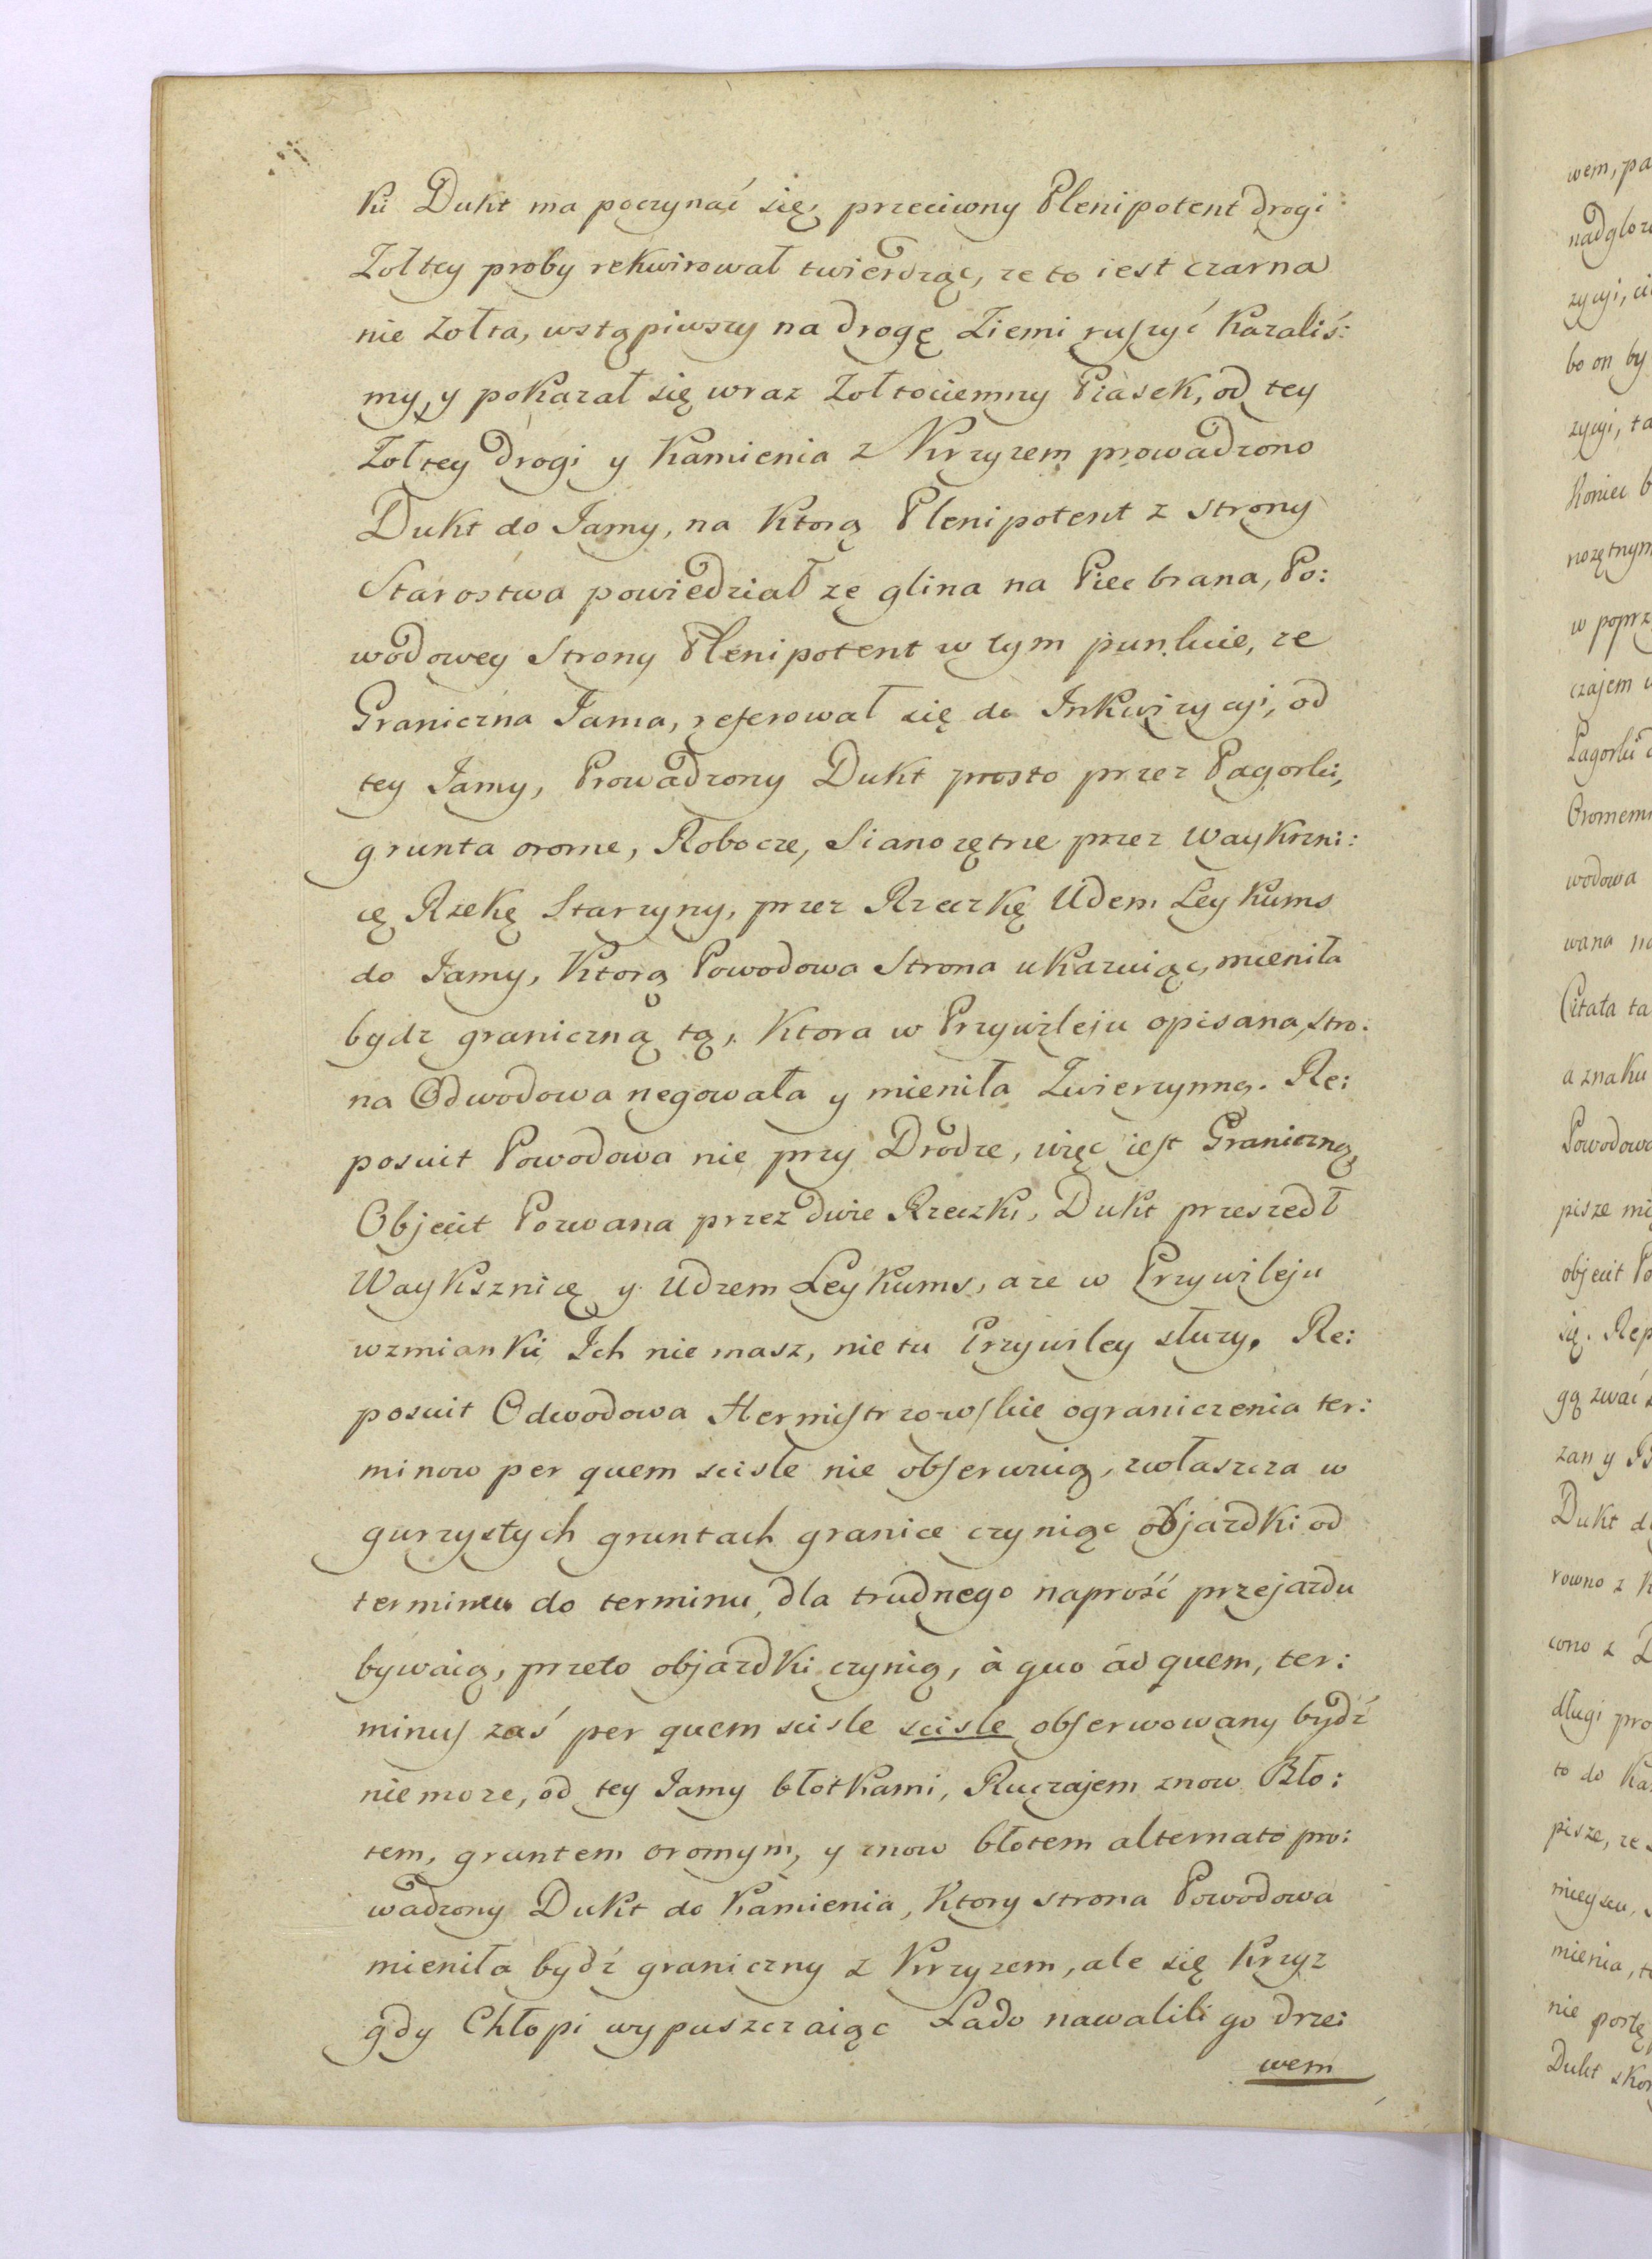 ki Dukt ma poczynać się, przeciwny Plenipotent drogi
Zołtey proby rekwirował twierdząc, ze to iest czarna
nie zołta, wstąpiwszy na drogę Ziemi ruszyć Kazaliś:
my, y pokazał się wraz Zołtociemny Piasek, od tey
Zołtey drogi y Kamienia z Krzyzem prowadzono
Dukt do Jamy, na Ktorą Plenipotent z strony
Starostwa powiedział ze glina na Piec brana, Po:
wodowey Strony Plenipotent w tym punkcie, ze
Graniczna Jama, referował się do Inkwizycji, od
tey Jamy, Prowadzony Dukt prosto przez Pagorki,
grunta orome, Robocze, Sianozętne przez Waykszni:
cę Rzekę Starzyny, przez Rzeczkę Udem Leykums
do Jamy, Ktorą Powodowa Strona ukazuiąc, mieniła
bydz graniczną tą, Ktora w Przywileju opisana, stro:
na Odwodowa negowała y mieniła Zwierzynną. Re:
posuit Powodowa nie przy Drodze, więc iest Graniczną,
Objecit Pozwana przez dwie Rzeczki, Dukt przeszedł
Wayksznicę y Udzem Leykums, a ze w Przywileju
wzmianki Ich nie masz, nie tu Przywiley słuzy. Re:
posuit Odwodowa Hermistrzowskie ograniczenia ter:
minow per quem scisle nie obserwuią, zwłaszcza w
gurzystych gruntach granice czyniąc objazdki od
terminu do terminu, dla trudnego naprość przejazdu
bywaią, przeto objazdki czynią, à quo ad quem, ter:
minus zaś per quem scisle scisle obserwowany bydź
nie moze, od tey Jamy błotkami, Ruczajem znow Bło:
tem, gruntem oromym, y znow błotem alternato pro:
wadzony Dukt do Kamienia, Ktory strona Powodowa
mieniła bydź graniczny z Krzyzem, ale się Krzyz
gdy Chłopi wypuszczaiąc Lado nawalili go drze:
wem
wem, pa
zycyi, ci
bo on by
zycyi, ta
Koniec b
w poprz
czajem
Pagorki
wodowa
wana na
Citata ta
a znaku
Powodowa
pisze mi
objecit Po
się. Rep
gą zwać
zan y
Dukt d
rowno z K
cono z D
długi pro
to do Ka
pisze, ze
mieyscu,
mienia, t
nie postę
Dukt skon